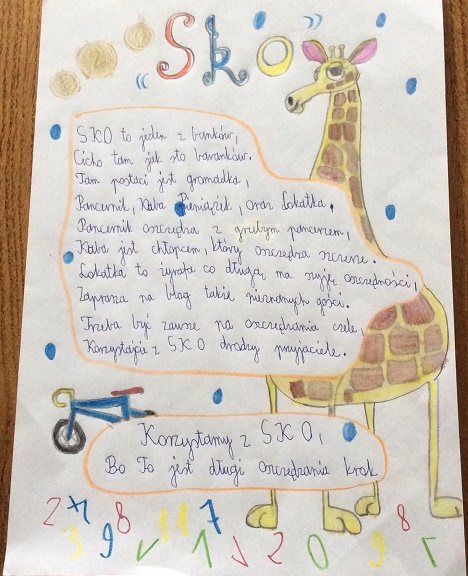 2
"Sko"
SKO to jeden z banków,
Cicho tam jak sto baranków.
Tam postaci jest gromadka,
Pancernik, Kuba Pieniążek, oraz Lokatka.
Pancernik oszczędza z grubym pancerzem,
Kuba jest chłopcem, który oszczędza szczerze.
Lokatka to żyrafa co długą ma szyję oszczędności,
Zaprasza na blog także nieznanych gości.
Trzeba być zawsze na oszczędzania czele,
Korzystajcie z SKO drodzy przyjaciele.
Korzystamy z SKO,
Bo To jest długi oszczędzania krok
2 7 3 9 8 11 1 7 2 0 9 8